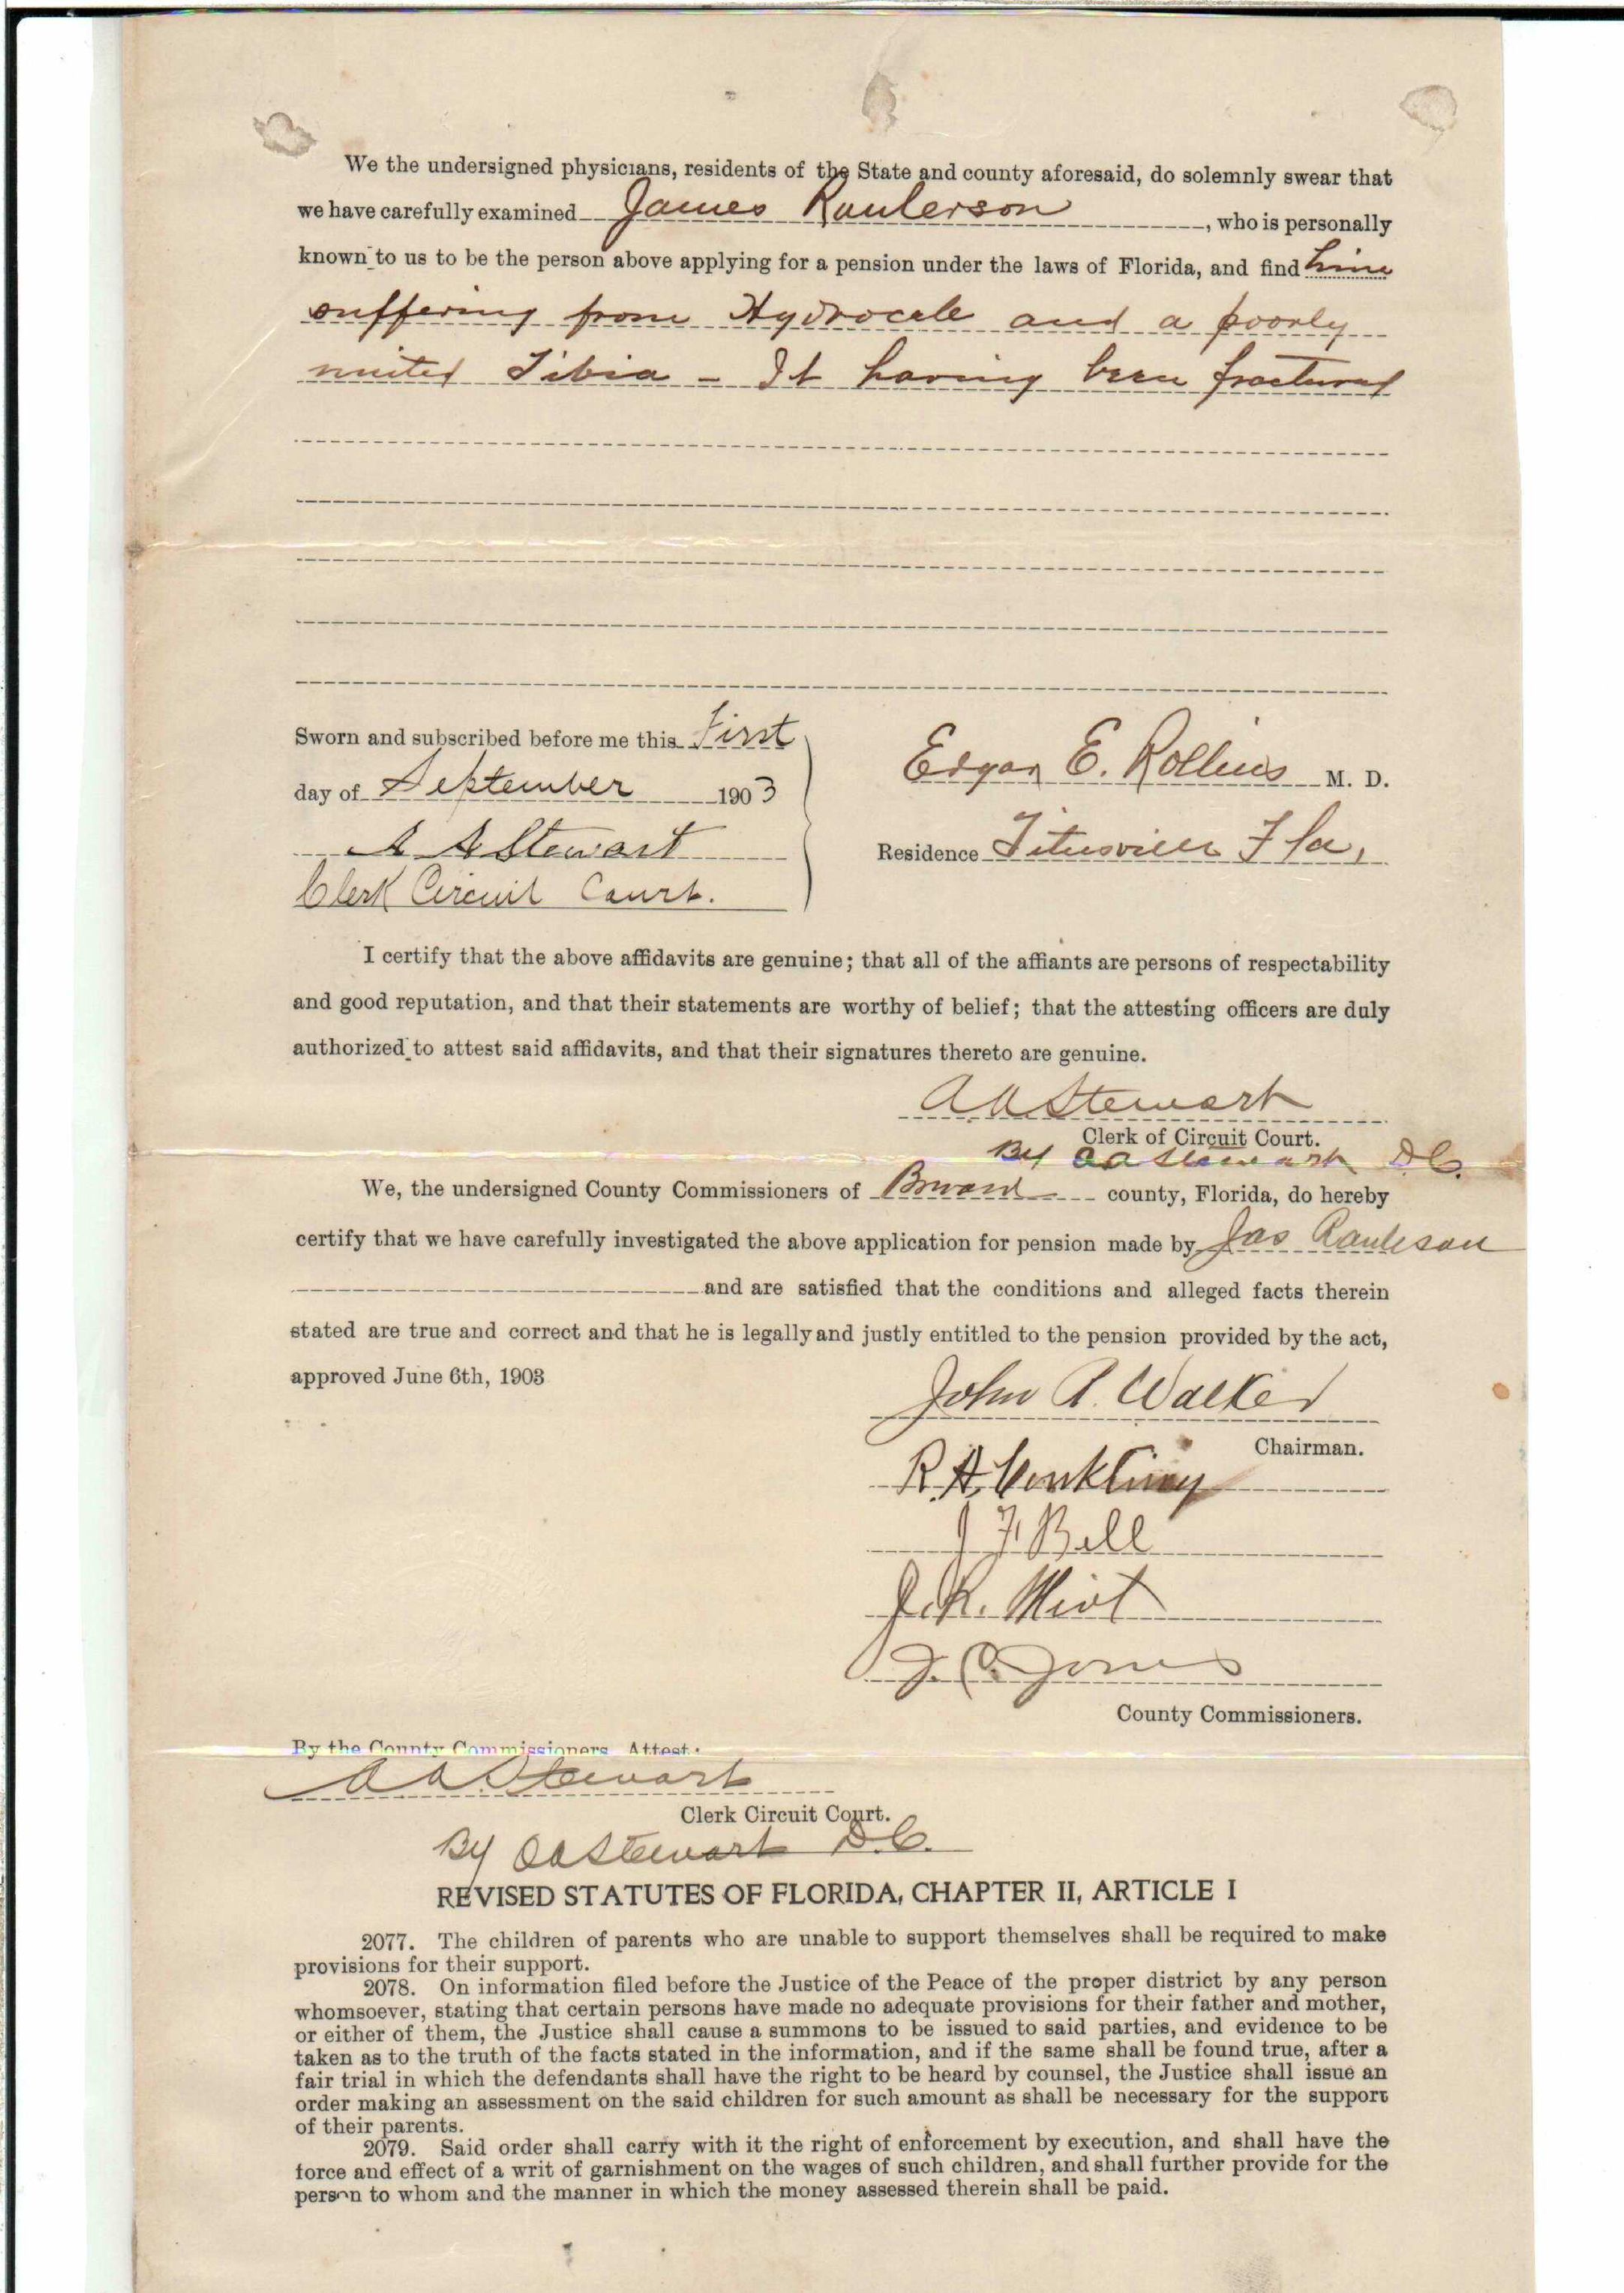 We the undersigned physicians, residents of the State and county aforesaid, do solemnly swear that
we have carefully examined James Raulerson, who is personally
known to us to be the person above applying for a pension under the laws of Florida, and find him
suffering from Hydrocele and a poorly
united Tibia - It having been fractured
Sworn and subscribed before me this First
day of September 1903
A A Stewart
Clerk Circuit Court.
Edgar E. Rollins M. D.
Residence Titusville Fla,
I certify that the above affidavits are genuine; that all of the affiants are persons of respectability
and good reputation, and that their statements are worthy of belief; that the attesting officers are duly
authorized to attest said affidavits, and that their signatures thereto are genuine.
A A Stewart
Clerk of Circuit Court.
By O A Stewart D.C.
We, the undersigned County Commissioners of Brevard county, Florida, do hereby
certify that we have carefully investigated the above application for pension made by Jas Raulerson
and are satisfied that the conditions and alleged facts therein
stated are true and correct and that he is legally and justly entitled to the pension provided by the act,
approved June 6th, 1903
John R. Walker
Chairman.
R. A. Conkling
J F Bell
J. R. Miot
J. C. Jones
County Commissioners.
By the County Commissioners Attest:
A A Stewart
Clerk Circuit Court.
By O A Stewart D.C.
REVISED STATUTES OF FLORIDA, CHAPTER II, ARTICLE I
2077. The children of parents who are unable to support themselves shall be required to make
provisions for their support.
2078. On information filed before the Justice of the Peace of the proper district by any person
whomsoever, stating that certain persons have made no adequate provisions for their father and mother,
or either of them, the Justice shall cause a summons to be issued to said parties, and evidence to be
taken as to the truth of the facts stated in the information, and if the same shall be found true, after a
fair trial in which the defendants shall have the right to be heard by counsel, the Justice shall issue an
order making an assessment on the said children for such amount as shall be necessary for the support
of their parents.
2079. Said order shall carry with it the right of enforcement by execution, and shall have the
force and effect of a writ of garnishment on the wages of such children, and shall further provide for the
person to whom and the manner in which the money assessed therein shall be paid.